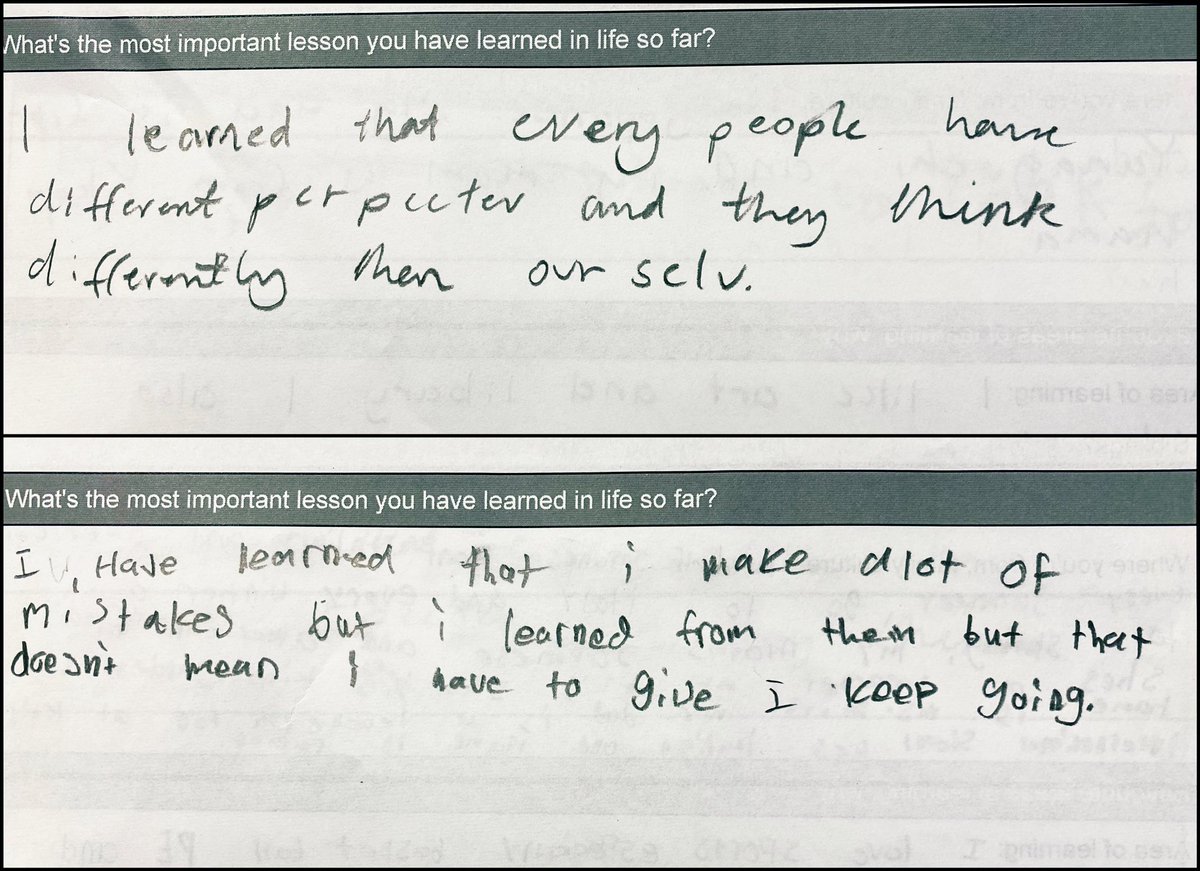 What's the most important lesson you have learned in life so far?
I learned that every people have
different perpecter and they think
differently then our selv.
What's the most important lesson you have learned in life so far?
I, Have learned that i make alot of
mistakes but i learned from them but that
doesn't mean i have to give I keep going.